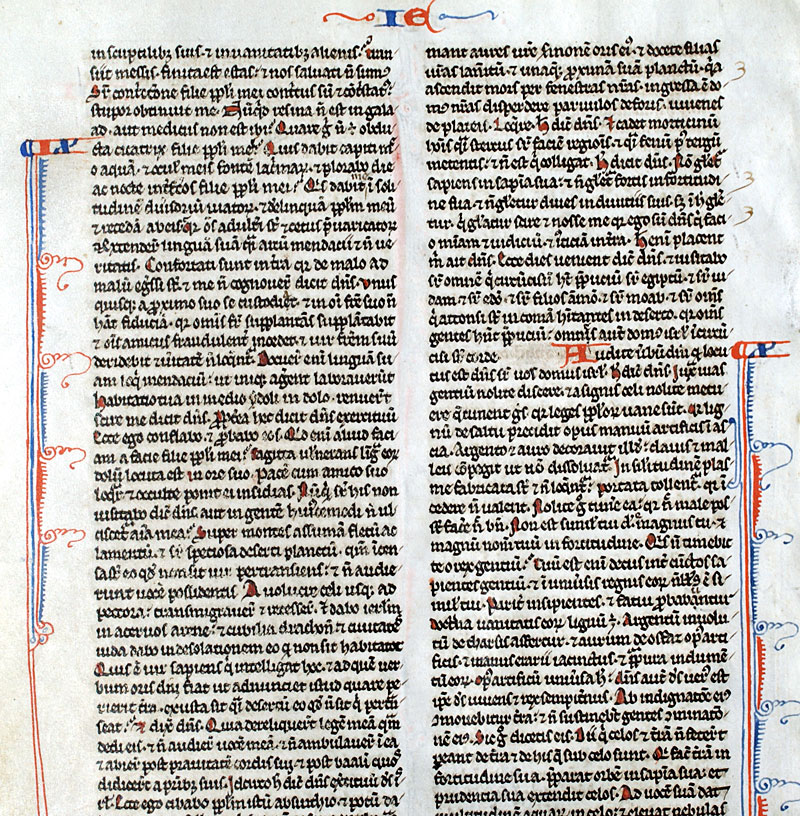 IE
in sculptilibȝ suis ⁊ in vanitatibȝ alienis. Tran
siit messis. finita est estas. ⁊ nos saluati nō sum⁹
Sup̄ cont̄cōne filie pp̄li mei cont̄tus sū ⁊ cōt̄stat⁹.
stupor obtinuit me. Nūqd resina nō est in gala
ad. aut medicus non est ibi. Quare ḡ nō ē obdu
cta cicatrix filie pp̄li mei.
IX
Quis dabit capiti mō
o aquā. ⁊ oculis meis fontē lacrimaꝝ. ⁊ plorabo die
ac nocte int̄fectos filie pp̄li mei. Qis dabit me ī soli
tudinē diuisoriū viatoꝝ. ⁊ delinquā pp̄lm meū
⁊ recedā ab eis. Qr om̄s adult̄i st̄ ⁊ cetus p̄uaricatoꝝ
⁊ extender̄ linguā suā q̄i arcū mendacii ⁊ nō ve
ritatis. Confortati sunt in t̄ra qr de malo ad
malū eḡssi st̄ ⁊ me nō cognouer̄ dicit dn̄s. vnus
quisqȝ a proximo suo se custodiet. ⁊ in oī fr̄e suo nō
hāt fiduciā. qr omīs fr̄ supplantās supplātabit
⁊ oīs amicus fraudulent̄ incedet. ⁊ vir frēm suū
deridebit ⁊ u̅itatē nō loq̄nt̄. Docuer̄ enī linguā su
am loqi mendaciū. ut iniqe aḡent laborauerūt
habitatio tua in medio doli in dolo. renuer̄t
scire me dicit dn̄s. Propt̄ea hec dicit dn̄s exercituū
Ecce ego conflabo. ⁊ probabo eos. Qid enī aliud faci
am a facie filie pp̄li mei. Sagitta uln̄erans ligā eoꝝ
dolū locuta est in ore suo. Pacē cum amico suo
loqt̄ ⁊ occulte ponit ei insidias. Nūqd sr̄ his non
visitabo dicit dn̄s. aut in gentē hui⁹cemodi nō ul
ciscet̄ aīa mea. Super montes assumā fletū ac
lamentū. ⁊ sr̄ speciosa deserti planctū. qm̄ īcen
sa st̄ eo qd non sit vir pertransiens. ⁊ nō audie
runt vocē possidentis. A volucre celi usqȝ ad
pecora. transmigrauer̄ ⁊ recesser̄. ⁊ dabo ierl̄m
in aceruos arene. ⁊ cubilia draconū. ⁊ ciuitates
iuda dabo in desolationem eo q non sit habitator
Quis ē vir sapiens qi intelligat hoc. ⁊ ad quē ver
bum oris dn̄i fiat ut adnunciet istud quare pe
rierit t̄ra. exusta sit q̄i desertū eo qd nō sit qi pertn̄
seat. ⁊ dixit dn̄s. Quia dereliquer̄t legē meā qm̄
dedi eis. ⁊ nō audier̄ vocē meā. ⁊ nō ambulauer̄ ī ea
⁊ abier̄ post prauitatē cordis sui ⁊ post baali quos
didicer̄t a patribȝ suis. Idcirco h̄ dic̄ dn̄s exercituū ds̄ i
rl̄. Ecce ego cibabo pp̄lm istū absinthio. ⁊ potū da
mant aures vr̄e s̄monē oris ei⁹. ⁊ docete filias
vr̄as lam̄tū. ⁊ unaqȝ proximā suā planctū. qia
ascendit mors per fenestras nr̄as. ingressa ē do
mū nr̄as disperdere paruulos deforis. iuuenes
de plateis. Loqere. h̄ dic̄ dn̄s. ⁊ cadet morticinū
hoīs qi stercus sr̄ faciē regionis. ⁊ qi fenū p̄ tergū
metentis. ⁊ nō est qi colligat. h̄ dicit dn̄s. Nō gl̄iet̄
sapiens in sapīa sua. ⁊ nō gl̄iet̄ fortis in fortitudi
ne sua ⁊ nō gl̄ietur diues in diuitiis suis. s̄ȝ in h̄ gl̄ie
tur. qi gl̄iatur scire ⁊ nosse me qr ego sū dn̄s qi faci
o mīam ⁊ iudiciū. ⁊ iusticiā in t̄ra. h̄ enī placent
m̄ ait dn̄s. Ecce dies veniunt dic̄ dn̄s. ⁊ visitabo
sr̄ omnē qi circūcisū h̄t p̄puciū sr̄ egiptū. ⁊ sr̄ iu
dam. ⁊ sr̄ edō. ⁊ sr̄ filios āmō. ⁊ sr̄ moab. ⁊ sr̄ om̄s
qi attonsi st̄ in comā hītantes in deserto. qr omīs
gentes hn̄t p̄puciū. omnis aut̄ dom⁹ isrl̄ īcircū
cisi st̄ corde.
X
Audite ūbū dn̄i qd locu
tus est dn̄s sr̄ vos domus isrl̄. h̄ dic̄ dn̄s. Iuxta vias
gentiū nolite discere. ⁊ a signis celi nolite metu
ere qe timent gn̄s. qr leges ipl̄oꝝ uane sūt. qr lig
nū de saltu precidit opus manuū artificis ī asc
ia. Argento ⁊ auro decorauit illud. clauis ⁊ mal
leis cōpegit ut nō dissoluat̄. In silitudinē pal
me fabricata st̄ ⁊ nō loqnt̄. portata tollent̄. qr ī
cedere nō valent. Nolite ḡ timere ea. qr nō male pos
st̄ facē nō bn̄. Non est similis tui dn̄e. magnus tu. ⁊
magnū nom̄ tuū in fortitudine. Qis nō timebit
te o rex gentiū. Tuū est enī decus int̄ cūctos sa
pientes gentiū. ⁊ ī uniuisis regnis eoꝝ nullus ē si
mil̄ tui. Pariter insipientes. ⁊ fatui probabuntur
doctrina vanitatis eoꝝ lignū ē. Argentū inuolu
tū de tharsis affertur. ⁊ aurum de ofaz. op⁹ arti
ficis. ⁊ manus erarii iacinctus. ⁊ purpura indumē
tū eoꝝ. op⁹ artificū uniuisa h̄. dn̄s aut̄ ds̄ ver⁹ est
ipe ds̄ viuens ⁊ rex sempiternus. Ab indignatōe ei⁹
cōmouebitur t̄ra. ⁊ nō sustinebt̄ gentes cōminatō
nē ei⁹. Sic ḡ dicetis eis. Dii qi celos ⁊ t̄rā nō fecer̄t
pereant de t̄ra ⁊ de his qe sub celo sunt. Qi facit t̄rā in
fortitudine sua. p̄parat orbē in sapīa sua. et
prudencia sua extendit celos. Ad vocē suā dat
multitudinē aquaꝝ in celo. ⁊ eleuat nebulas